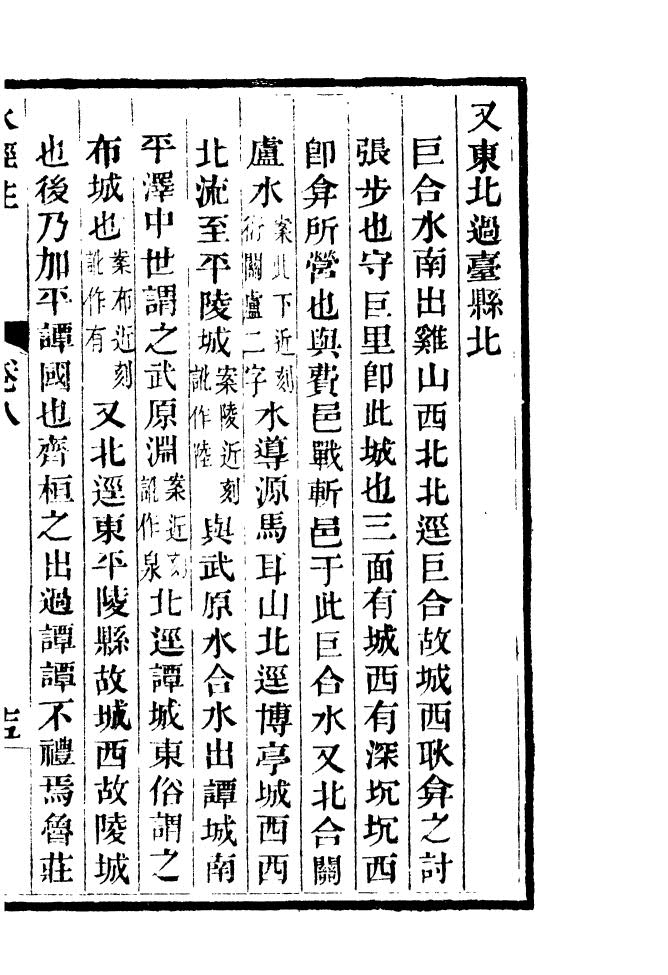 又東北過臺縣北
巨合水南出雞山西北北逕巨合故城西耿弇之討
張步也守巨里卽此城也三面有城西有深坑坑西
卽弇所營也與費邑戰斬邑于此巨合水又北合關
盧水案此下近刻衍關盧二字水導源馬耳山北逕博亭城西西
北流至平陵城案陵近刻訛作陸與武原水合水出譚城南
平澤中世謂之武原淵案近刻訛作泉北逕譚城東俗謂之
布城也案布近刻訛作有又北逕東平陵縣故城西故陵城
也後乃加平譚國也齊桓之出過譚譚不禮焉魯莊
水經注 卷八 十五